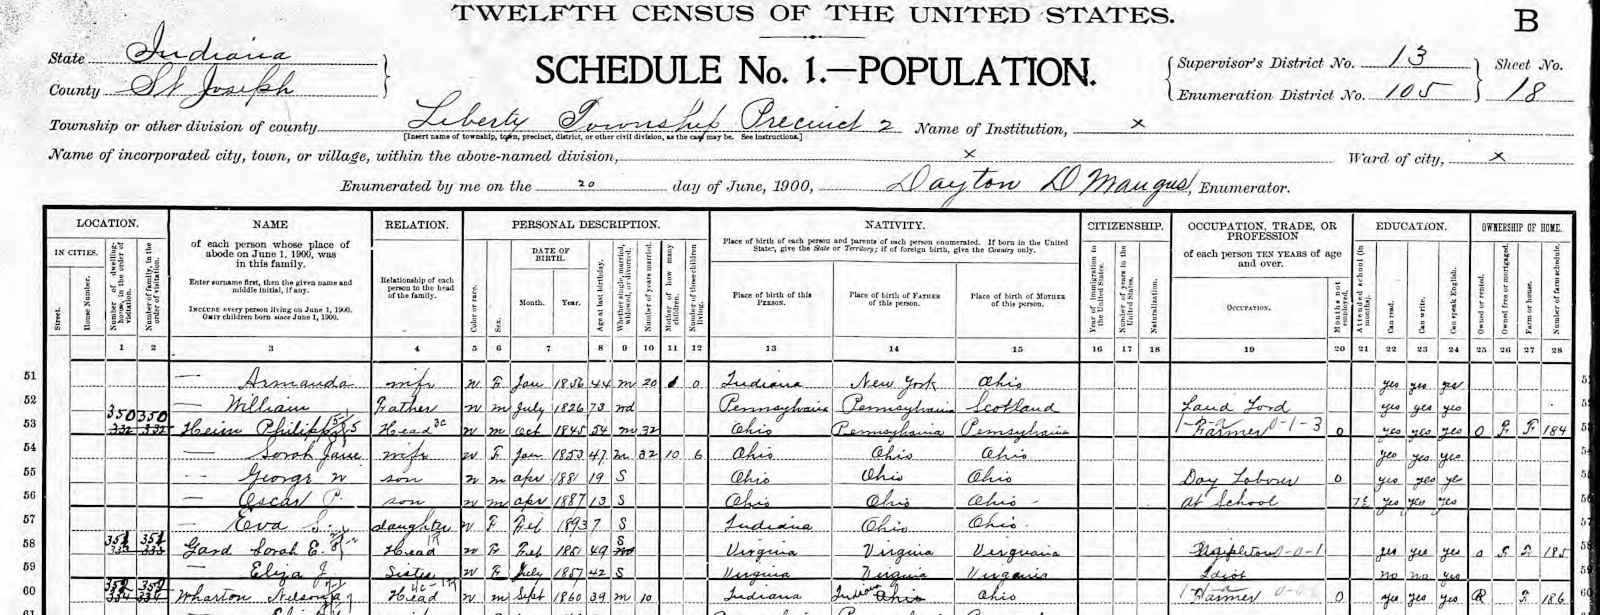 TWELFTH CENSUS OF THE UNITED STATES.
B
State Indiana
County St Joseph
SCHEDULE No. 1.—POPULATION.
Supervisor's District No. 13
Enumeration District No. 105
Sheet No.
18
Township or other division of county Liberty Township Precinct 2 Name of Institution, x
[Insert name of township, town, precinct, district, or other civil division, as the case may be. See instructions.]
Name of incorporated city, town, or village, within the above-named division, x Ward of city, x
Enumerated by me on the 20 day of June, 1900, Dayton D Maugus, Enumerator.
LOCATION. NAME RELATION. PERSONAL DESCRIPTION. NATIVITY. CITIZENSHIP. OCCUPATION, TRADE, OR PROFESSION EDUCATION. OWNERSHIP OF HOME.
IN CITIES.
Street.
House Number.
Number of dwelling-house, in the order of visitation.
Number of family, in the order of visitation.
of each person whose place of abode on June 1, 1900, was in this family.
Enter surname first, then the given name and middle initial, if any.
INCLUDE every person living on June 1, 1900.
OMIT children born since June 1, 1900.
Relationship of each person to the head of the family.
Color or race.
Sex.
DATE OF BIRTH.
Month. Year.
Age at last birthday.
Whether single, married, widowed, or divorced.
Number of years married.
Mother of how many children.
Number of these children living.
Place of birth of each person and parents of each person enumerated. If born in the United States, give the State or Territory; if of foreign birth, give the Country only.
Place of birth of this PERSON.
Place of birth of FATHER of this person.
Place of birth of MOTHER of this person.
Year of immigration to the United States.
Number of years in the United States.
Naturalization.
of each person TEN YEARS of age and over.
OCCUPATION.
Months not employed.
Attended school (in months).
Can read.
Can write.
Can speak English.
Owned or rented.
Owned free or mortgaged.
Farm or house.
Number of farm schedule.
1 2 3 4 5 6 7 8 9 10 11 12 13 14 15 16 17 18 19 20 21 22 23 24 25 26 27 28
51 — Armanda wife W F Jan 1856 44 m 20 0 Indiana New York Ohio yes yes yes
52 — William Father W m July 1826 73 wd Pennsylvania Pennsylvania Scotland Land Lord yes yes yes
53 350 350 332 332 Heim Philipp Head W m Oct 1845 54 m 32 Ohio Pennsylvania Pennsylvania Farmer 0-1-3 0 yes yes yes O F F 184
54 — Sorah Jane wife W F Jan 1853 47 m 32 10 6 Ohio Ohio Ohio yes yes yes
55 — George W son W m apr 1881 19 S Ohio Ohio Ohio Day Labour 0 yes yes ye
56 — Oscar P. son W m apr 1887 13 S Ohio Ohio Ohio at School yes yes yes
57 — Eva daughter W F Feb 1893 7 S Indiana Ohio Ohio
58 351 351 333 333 Gard Sorah E. Head W F Feb 1851 49 S Virginia Virginia Virginia 0-0-1 yes yes yes O F F 185
59 — Eliza J Sister W F July 1857 42 S Virginia Virginia Virginia Idiot no no yes
60 352 352 334 334 Wharton Nelson Head W m Sept 1860 39 m 10 Indiana Indiana Ohio Farmer 0 yes yes yes R F 186
61